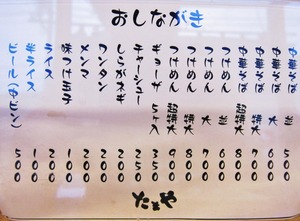 おしながき
中華そば 並 500
中華そば 大 600
中華そば 特大 700
中華そば 超特大 800
つけめん 並 600
つけめん 大 700
つけめん 特大 800
つけめん 超特大 900
ギョーザ 5ヶ入 300
チャーシュー 250
しらがネギ 250
ワンタン 200
メンマ 200
味つけ玉子 100
ライス 200
半ライス 100
ビール(中ビン) 500
たまや